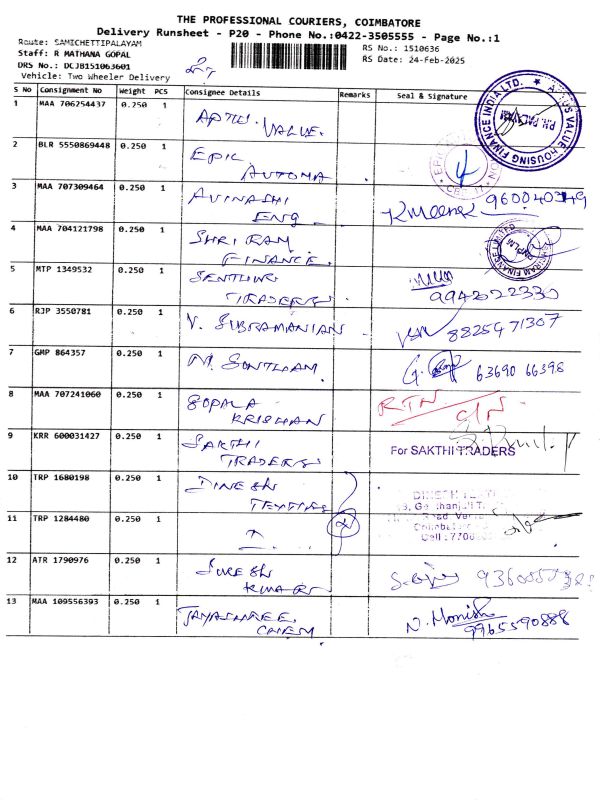 THE PROFESSIONAL COURIERS, COIMBATORE
Delivery Runsheet - P20 - Phone No.:0422-3505555 - Page No.:1
Route: SAMICHETTIPALAYAM
Staff: R MATHANA GOPAL
DRS No.: DCJB151063601
Vehicle: Two Wheeler Delivery
RS No.: 1510636
RS Date: 24-Feb-2025
S No Consignment No Weight PCS Consignee Details Remarks Seal & Signature
1 MAA 706254437 0.250 1 APTUS VALUE.
APTUS VALUE HOUSING FINANCE INDIA LTD.
2 BLR 5550869448 0.250 1 EPIC AUTOMA
3 MAA 707309464 0.250 1 AVINASHI ENG
4 MAA 704121798 0.250 1 SHRI RAM FINANCE.
SHRIRAM FINANCE LIMITED
5 MTP 1349532 0.250 1 TRADERS
6 RJP 3550781 0.250 1 V. SUBRAMANIAN 8825471307
7 GMP 864357 0.250 1 63690 66398
8 MAA 707241060 0.250 1 GOPALA KRISHAN RTN
9 KRR 600031427 0.250 1 SAKTHI TRADERS
For SAKTHI TRADERS
10 TRP 1680198 0.250 1 DINESH
11 TRP 1284480 0.250 1
12 ATR 1790976 0.250 1 SURESH KUMAR
13 MAA 109556393 0.250 1 JAYASHREE CHEM N. Monish
9965590888